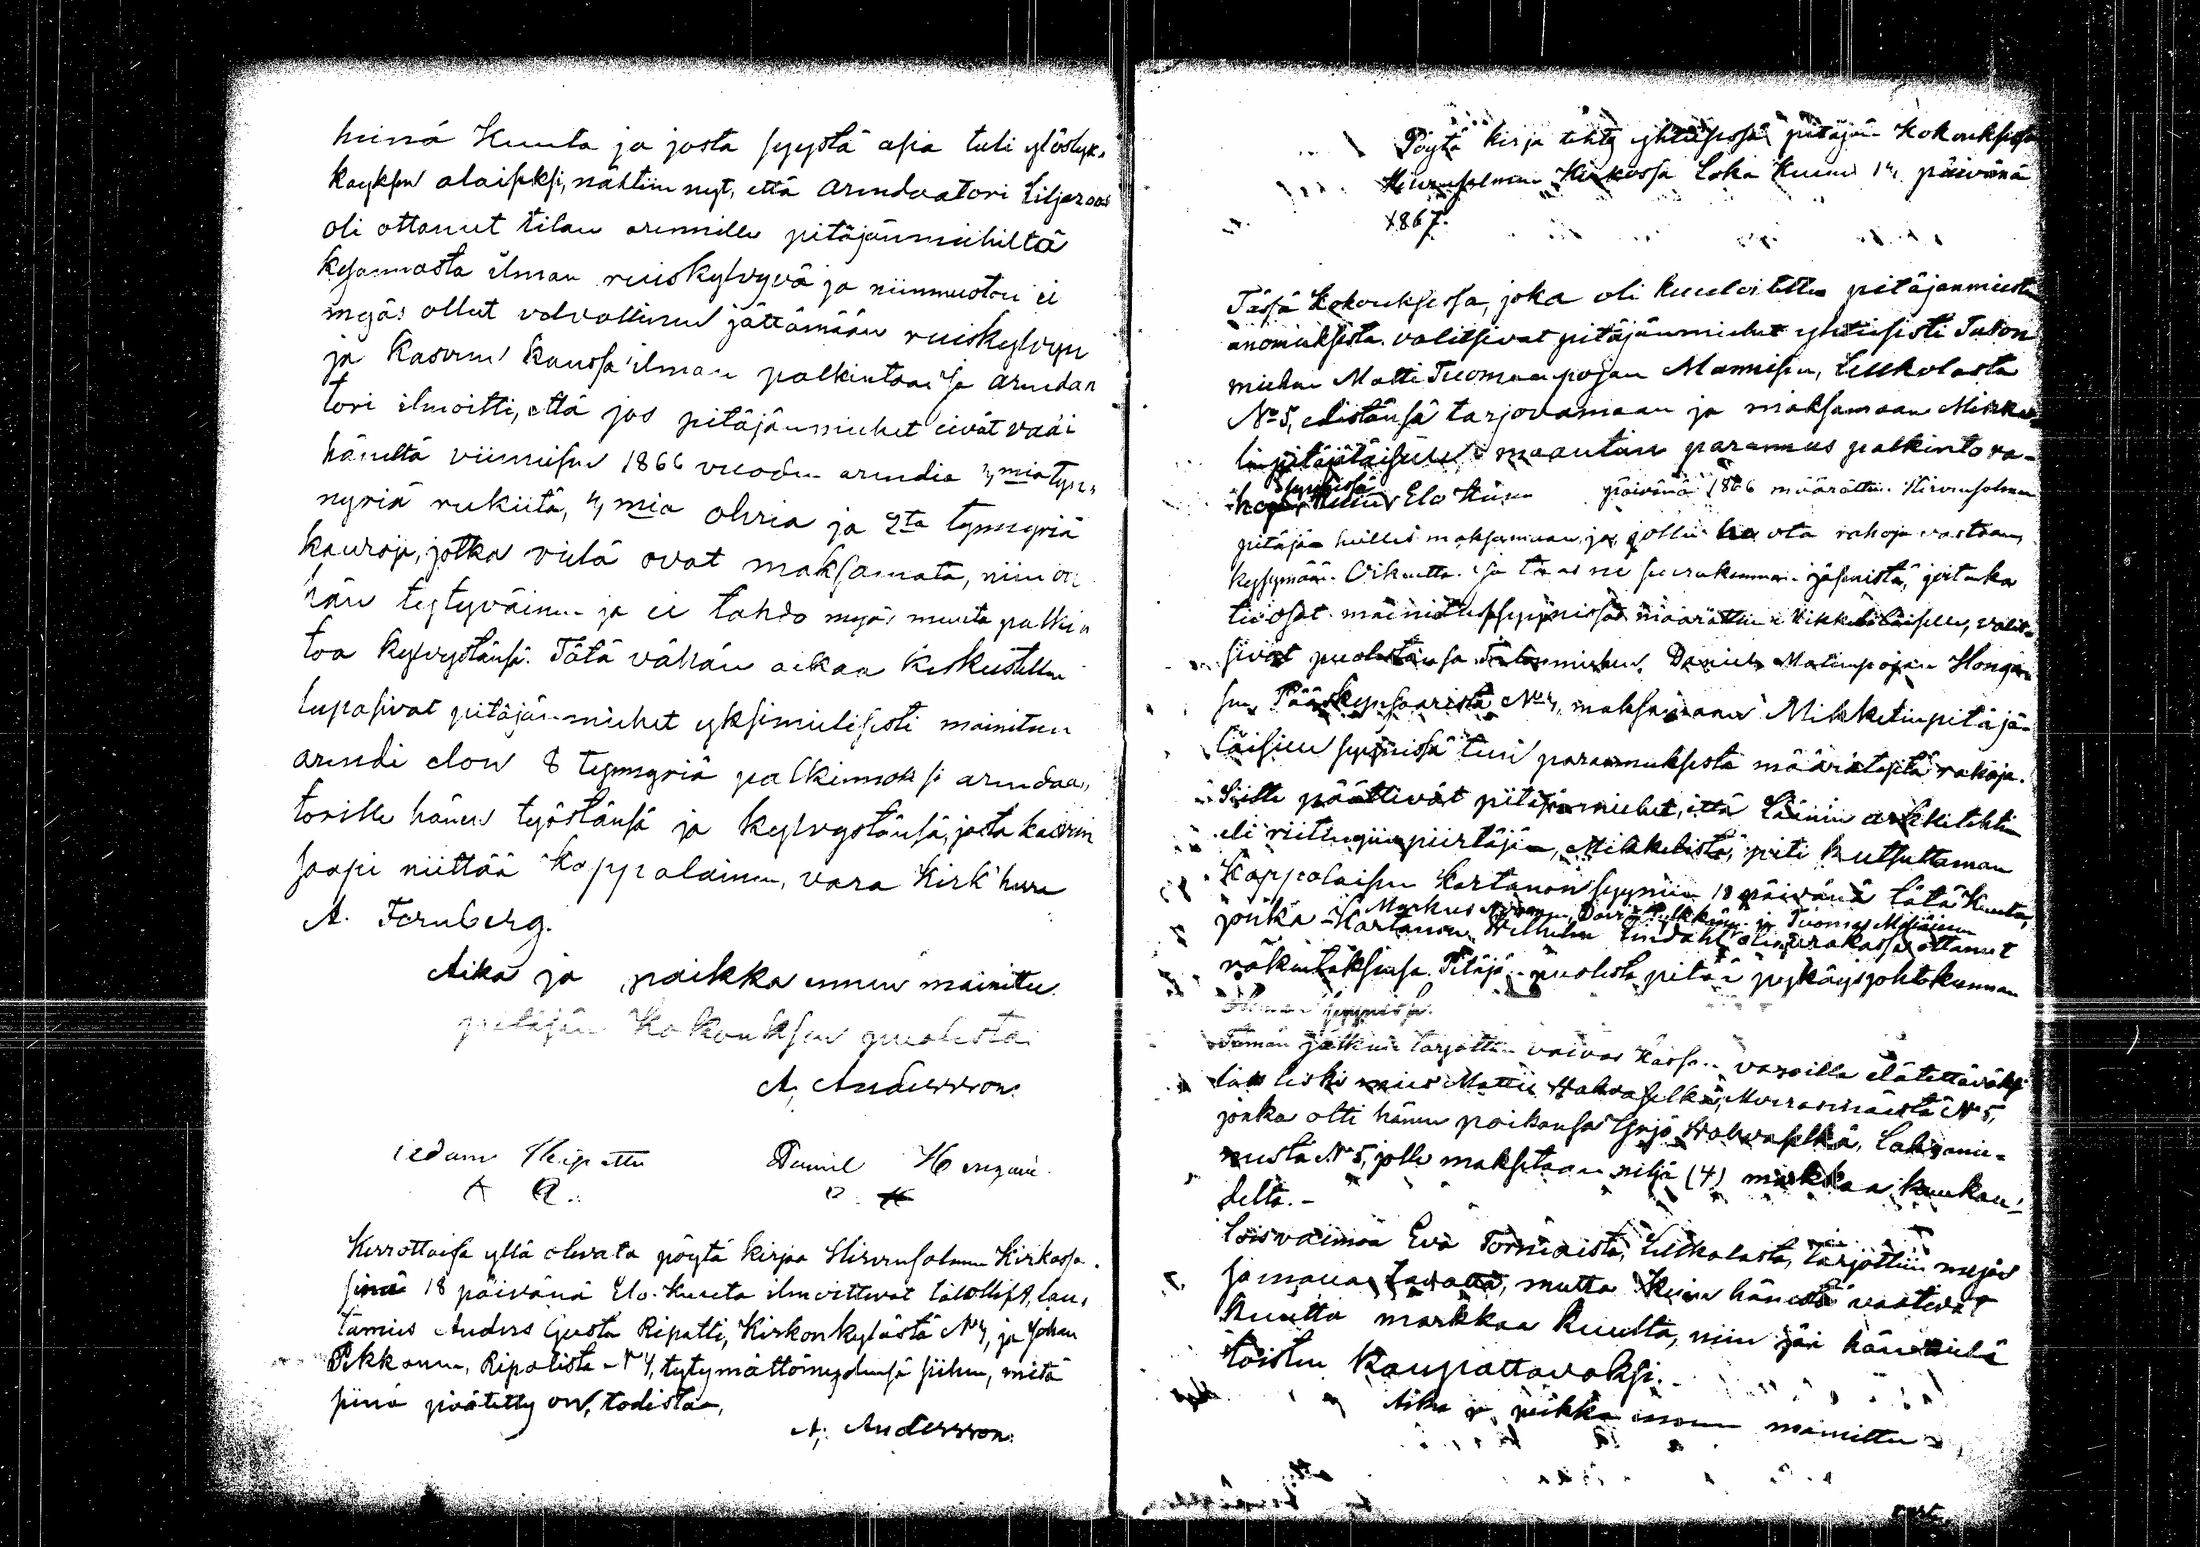 heinä Kuuta ja josta syystä asia tuli ylöslyk-
käyksen alaiseksi, nähtiin nyt, että arendaatori Liljeroos
oli ottanut tilan arennille pitäjänmiehiltä
kesannosta ilman ruiskylvyvä ja niinmuotoin ei
myös ollut velvollinen jättämään ruiskylvyn
ja kasvun kanssa ilman palkintoa ja arendaa
tori ilmoitti, että jos pitäjänmiehet eivät vaadi
häneltä viimeisen 1866 vuoden arendia 4 mia tyn-
nyriä rukiita, 4 mia ohria ja 2ta tynnyriä
kauroja, jotka vielä ovat maksamata, niin on
hän tyytyväinen ja ei tahdo myös muuta palkin
toa kylvystänsä. Tätä vähän aikaa keskustellen
lupasivat pitäjänmiehet yksimielisesti mainitun
arendi elon 8 tynnyriä palkinnoksi arendaa-
torille hänen työstänsä ja kylvystänsä, josta kasvun
saapi niittää Koppalainen, vara Kirk'herra
A. Fornberg.
Aika ja paikka ennen mainittu.
pitäjän Kokouksen puolesta
A. Andersson.
Adam Ripatti Daniel Hongan
A R. D. H
Kerrottaissa yllä olevata pöytä kirjaa Hirvensalmen Kirkossa
sinä 18 päivänä Elo-Kuuta ilmoittivat talolliset, lau-
tamies Anders Gusta Ripatti, Kirkonkylästä No 4, ja Johan
Pekkanen, Ripalista No 4, tytymättömyydensä siihen, mitä
siinä päätetty on, todistaa,
A. Andersson.
Pöytä kirja tehty yhteisessä pitäjän kokouksessa
Hirvensalmen Kirkossa Loka Kuun 14 päivänä
1867.
Tässä Kokouksessa, joka oli kuuloitettu pitäjänmiesten
anomuksesta, valitsivat pitäjänmiehet yhteisesti Talon
miehen Matti Tuomaanpojan Mannisen, Leukolasta
No 5, edestänsä tarjovamaan ja maksamaan Mikke-
linpitäjäläisille maantien parannus palkinto ra-
hoja, Elo Kuun päivänä 1866 määrättiin Hirvensalmen
pitäjän heille maksamaan, ja jollei he ota rahoja vastaan,
kysymään Oikeutta. ja taas ne seurakunnan jäsenistä, joitenka
tie osat mainitussa syynissä määrättiin Mikkeliläisille, valit-
sivat puolestansa Talonmiehen, Daniel Matinpojan Honga-
sen Pääskynsaaresta No 4, maksamaan Mikkelinpitäjä-
läisille syynissä tien parannuksesta määrätystä rahoja.
Sitte päättivät pitäjänmiehet, että Läänin arkkitehtin
eli riitinginpiirtäjän, Mikkelistä, piti kutsuttaman
Koppolaisen kartanon syyniin 18 päivänä tätä Kuuta,
Markus Noronen, David Pulkkinen ja Tuomas Manninen
jonka Kartanon Wilhelm Lindahl oli urakassa ottanut
rakentaksensa. Pitäjän puolesta pitää pykäysjohtokunnan
oleman syynissä.
Tämän jälkeen tarjottiin vaivas kassan varoilla elätettäväksi
lois leski mies Matti Halvaselkä, Muurasmäestä No 5,
jonka otti hänen poikansa Yrjö Halvaselkä, Lahnanie-
mestä No 5, jolle maksetaan neljä (4) markkaa kuukau-
delta.
Loisvaimoa Eva Torniaista, Leukolasta, tarjottiin myös
samalla tavalla, mutta kuin hänestä vaativat
kuutta markkaa kuulta, niin jäi hän vielä
toisten kaupattavaksi.
Aika ja paikka ennen mainittu